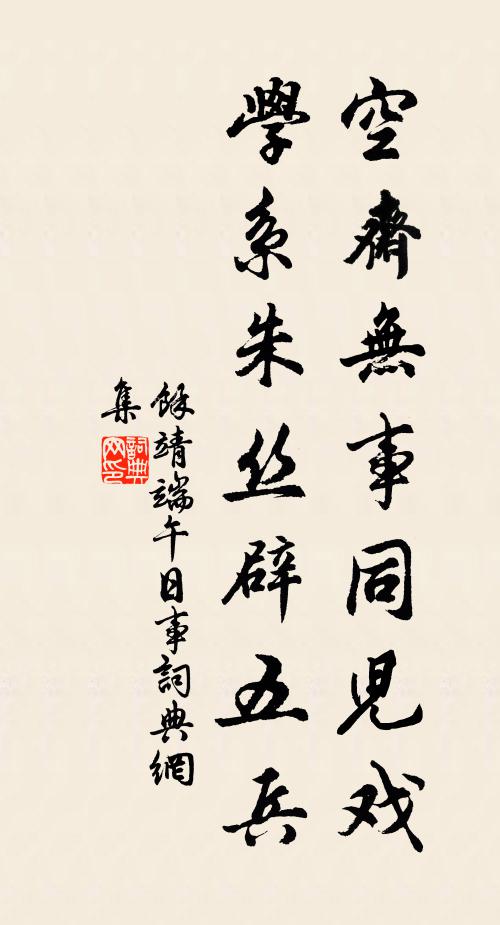 空齋無事同児戏
學系朱丝辟五兵
餘靖端午日事詞典網
集
詞典网印